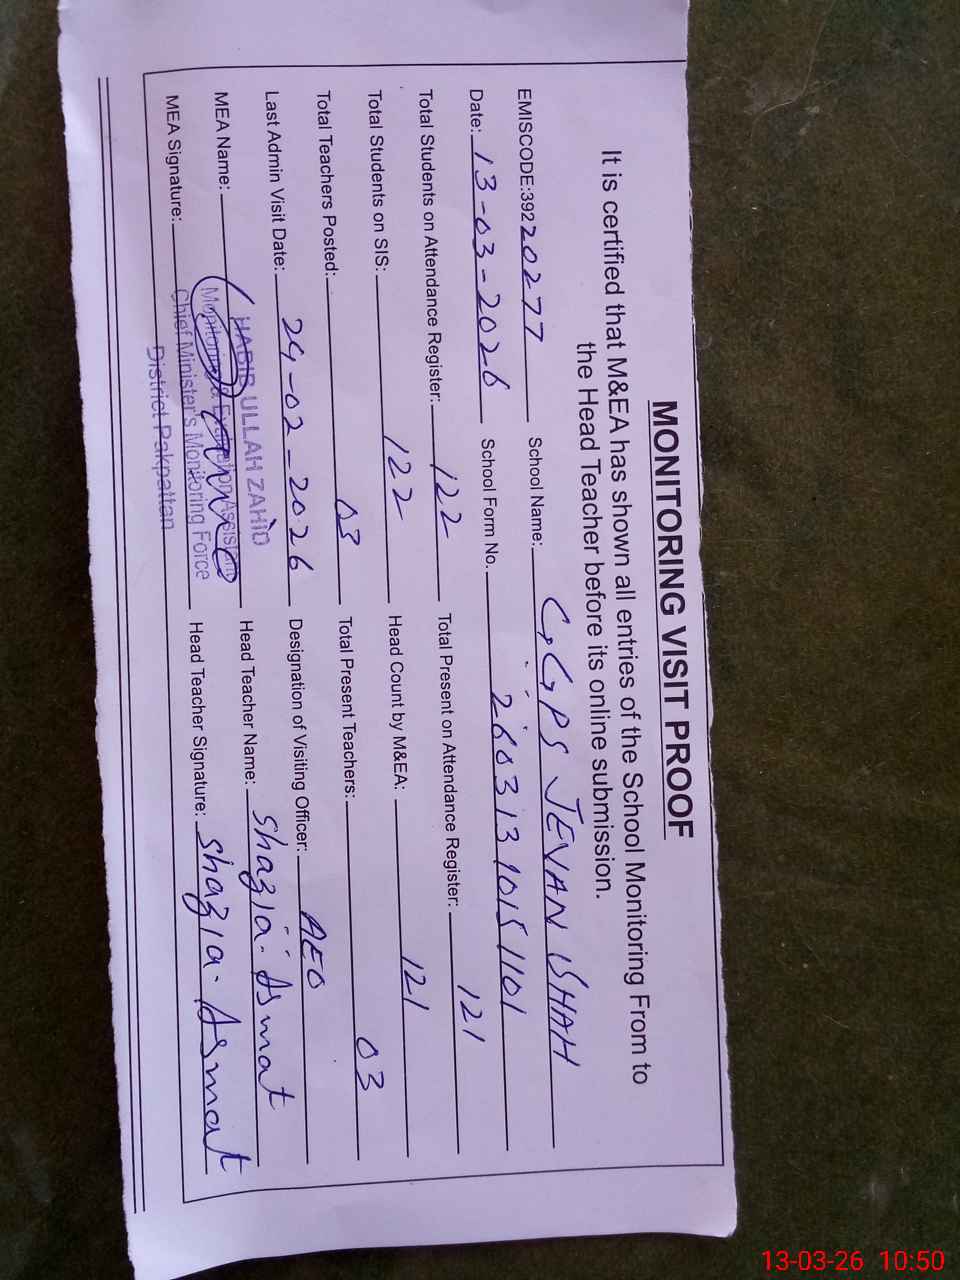 MONITORING VISIT PROOF
It is certified that M&EA has shown all entries of the School Monitoring From to
the Head Teacher before its online submission.
EMISCODE:39220277 School Name: GGPS JEVAN SHAH
Date: 13-03-2026 School Form No. 26031310151101
Total Students on Attendance Register: 122 Total Present on Attendance Register: 121
Total Students on SIS: 122 Head Count by M&EA: 121
Total Teachers Posted: 03 Total Present Teachers: 03
Last Admin Visit Date: 24-02-2026 Designation of Visiting Officer: AEO
MEA Name: HABIB ULLAH ZAHID Head Teacher Name: Shazia Asmat
Monitoring & Evaluation Assistant
MEA Signature: Chief Minister's Monitoring Force Head Teacher Signature: Shazia Asmat
District Pakpattan
13-03-26 10:50